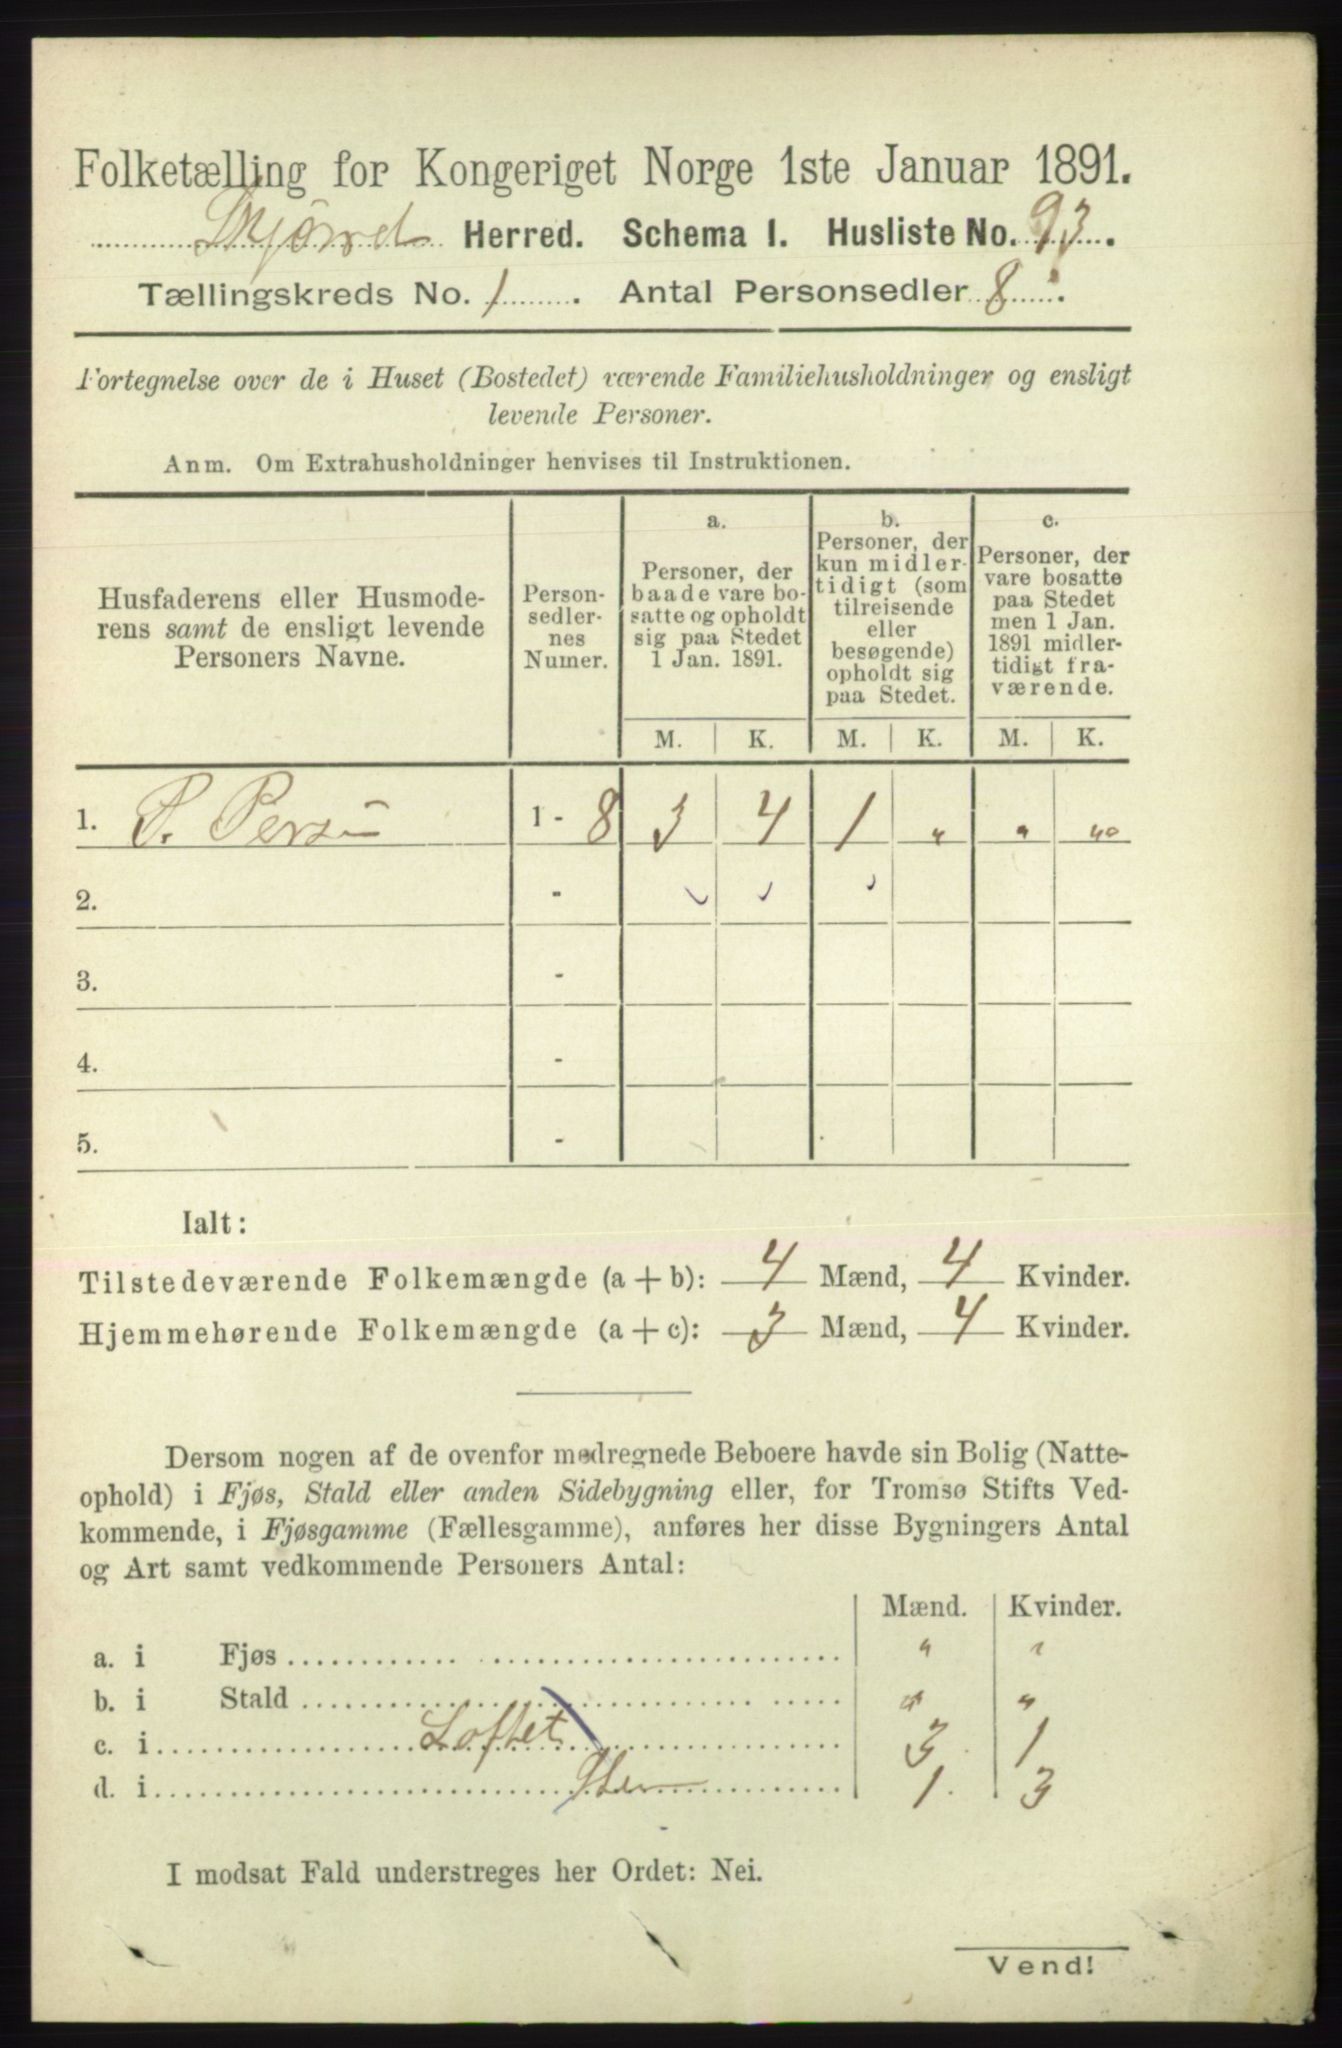 Folketælling for Kongeriget Norge 1ste Januar 1891.
Herred. Schema I. Husliste No. 93.
Tællingskreds No. 1. Antal Personsedler 8.
Fortegnelse over de i Huset (Bostedet) værende Familiehusholdninger og ensligt
levende Personer.
Anm. Om Extrahusholdninger henvises til Instruktionen.
Husfaderens eller Husmode-
rens samt de ensligt levende
Personers Navne.
Person-
sedler-
nes
Numer.
a.
Personer, der
baade vare bo-
satte og opholdt
sig paa Stedet
1 Jan. 1891.
b.
Personer, der
kun midler-
tidigt (som
tilreisende
eller
besøgende)
opholdt sig
paa Stedet.
c.
Personer, der
vare bosatte
paa Stedet
men 1 Jan.
1891 midler-
tidigt fra-
værende.
M. K. M. K. M. K.
1. P. 1 - 8 3 4 1 " " "
2. -
3. -
4. -
5. -
Ialt:
Tilstedeværende Folkemængde (a + b): 4 Mænd, 4 Kvinder.
Hjemmehørende Folkemængde (a + c): 3 Mænd, 4 Kvinder.
Dersom nogen af de ovenfor medregnede Beboere havde sin Bolig (Natte-
ophold) i Fjøs, Stald eller anden Sidebygning eller, for Tromsø Stifts Ved-
kommende, i Fjøsgamme (Fællesgamme), anføres her disse Bygningers Antal
og Art samt vedkommende Personers Antal:
Mænd. Kvinder.
a. i Fjøs " "
b. i Stald " "
c. i Loftet 3 1
d. i 1 3
I modsat Fald understreges her Ordet: Nei.
Vend!